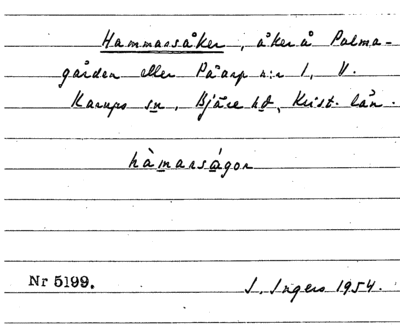 Hammarsåker, åker å Palma-
gården eller Påarp n:r 1, V.
Karups sn, Bjäre hd, Krist. län.
hàmarságor
Nr 5199.
I. Ingers 1954.